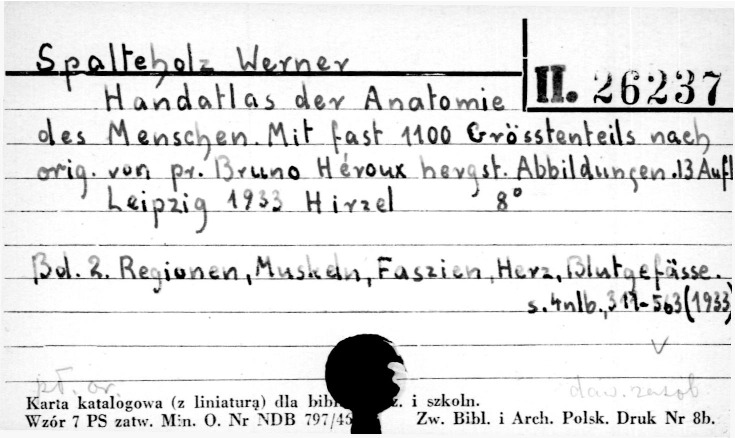 Spalteholz Werner
II. 26237
Handatlas der Anatomie
des Menschen. Mit fast 1100 Grösstenteils nach
orig. von pr. Bruno Héroux hergst. Abbildungen. 13 Aufl
Leipzig 1933 Hirzel 8°
Bd. 2. Regionen, Muskeln, Faszien, Herz, Blutgefässe.
s. 4nlb., 311-563 (1933)
pł. or. daw. zasób
Karta katalogowa (z liniaturą) dla i szkoln.
Wzór 7 PS zatw. Min. O. Nr NDB Zw. Bibl. i Arch. Polsk. Druk Nr 8b.